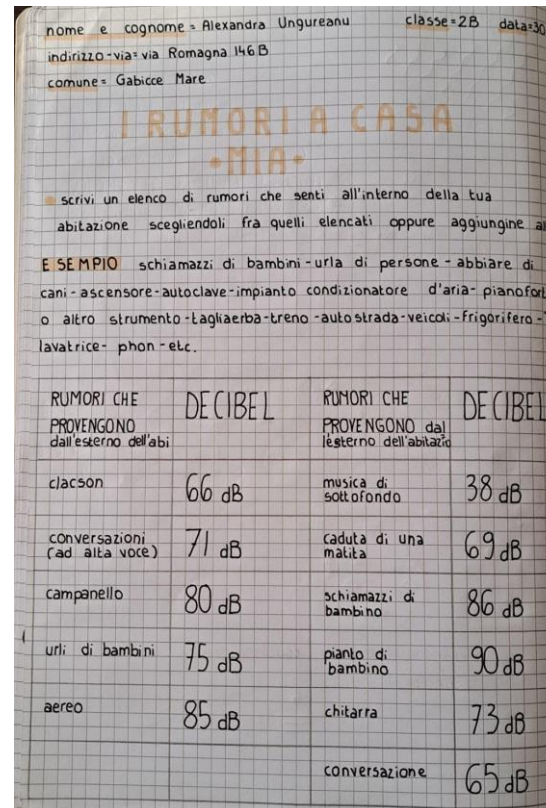 nome e cognome = Alexandra Ungureanu classe = 2B data = 30
indirizzo - via = via Romagna 146 B
comune = Gabicce Mare
I RUMORI A CASA
• MIA •
scrivi un elenco di rumori che senti all'interno della tua
abitazione scegliendoli fra quelli elencati oppure aggiungine al
ESEMPIO schiamazzi di bambini - urla di persone - abbiare di
cani - ascensore - autoclave - impianto condizionatore d'aria - pianofort
o altro strumento - tagliaerba - treno - autostrada - veicoli - frigorifero -
lavatrice - phon - etc.
RUMORI CHE PROVENGONO dall'esterno dell'abi DECIBEL RUMORI CHE PROVENGONO dal l'esterno dell'abitazio DECIBEL
clacson 66 dB musica di sottofondo 38 dB
conversazioni (ad alta voce) 71 dB caduta di una matita 69 dB
campanello 80 dB schiamazzi di bambino 86 dB
urli di bambini 75 dB pianto di bambino 90 dB
aereo 85 dB chitarra 73 dB
conversazione 65 dB